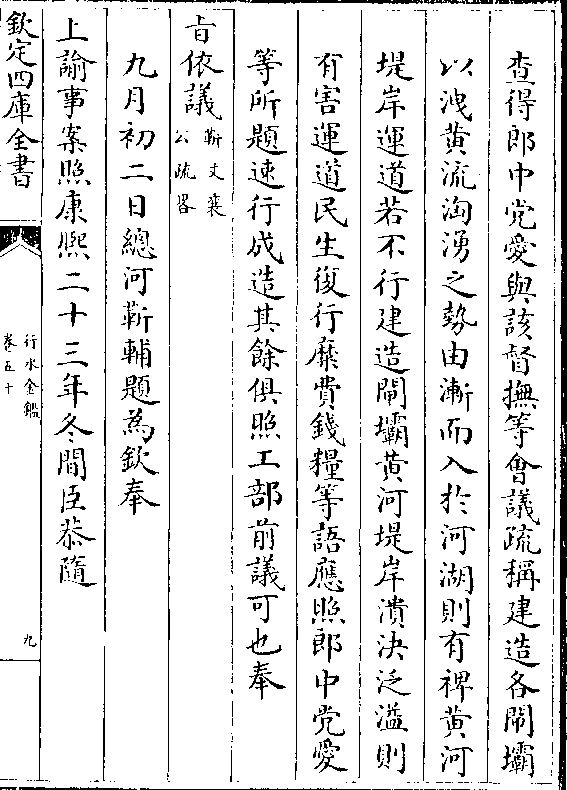 查得郎中党愛與該督撫等會議疏稱建造各閘壩
以洩黄流洶湧之勢由漸而入於河湖則有裨黄河
堤岸運道若不行建造閘壩黄河堤岸潰決泛溢則
有害運道民生復行糜費錢糧等語應照郎中党愛
等所題速行成造其餘俱照工部前議可也奉
㫖依議靳文襄公疏畧
九月初二日總河靳輔題為欽奉
上諭事案照康熈二十三年冬間臣恭隨
欽定四庫全書
行水金鑑
卷五十
九